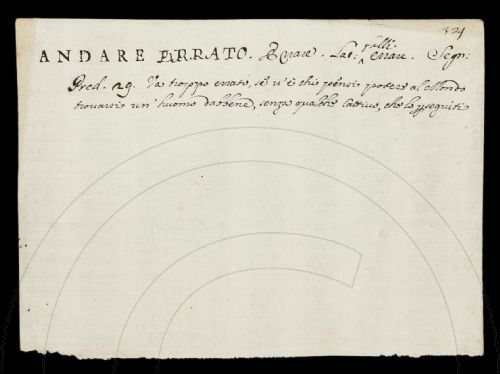 324
ANDARE ERRATO. Errare. Lat. falli, errare. Segn:
Pred. 29. Va troppo errato, se v'è chi pensi potere al Mondo
trovarsi un' huomo dabbene, senza qualche cattivo, che lo perseguiti